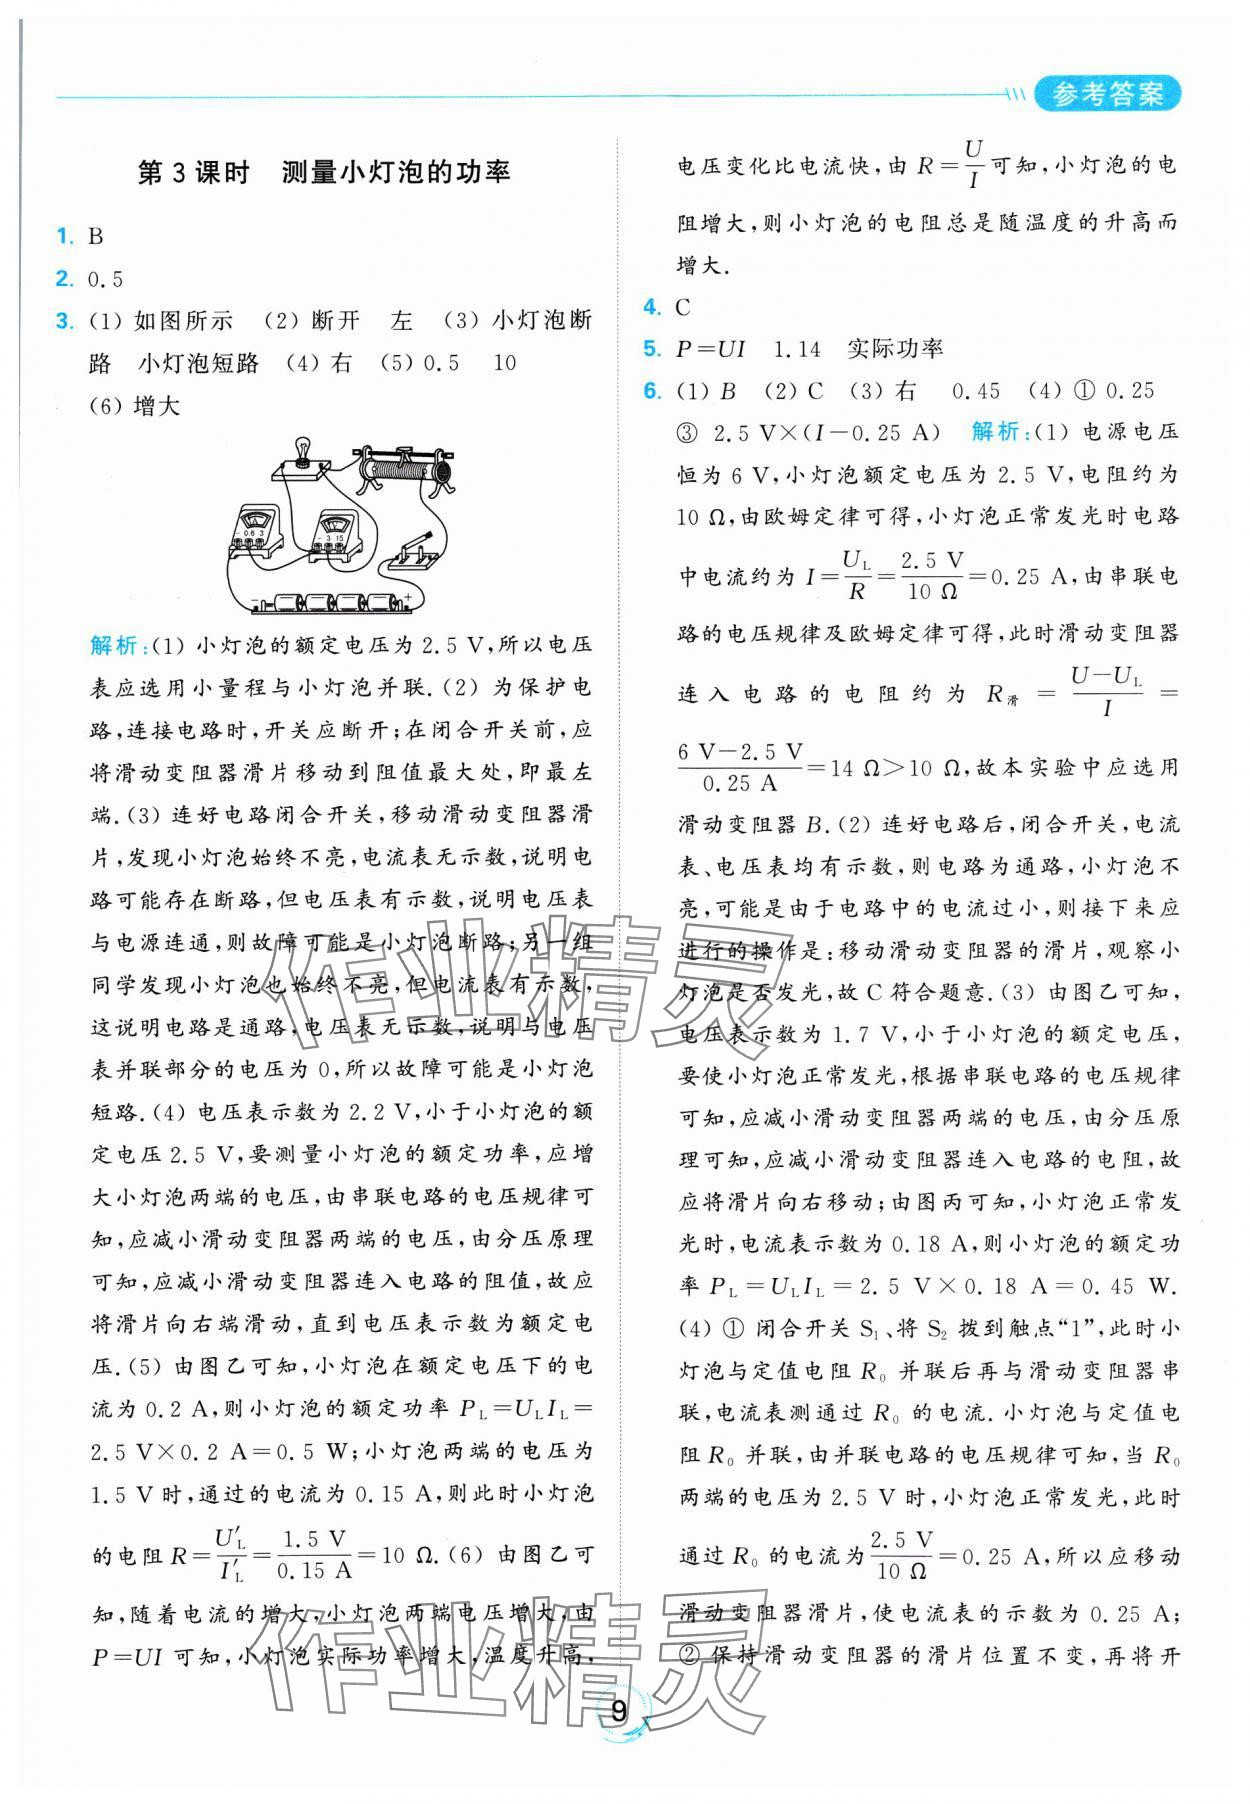 参考答案
第3课时 测量小灯泡的功率
1. B
2. 0.5
3. (1)如图所示 (2)断开 左 (3)小灯泡断
路 小灯泡短路 (4)右 (5)0.5 10
(6)增大
- 0.6 3
- 3 15
- +
解析:(1)小灯泡的额定电压为2.5 V,所以电压
表应选用小量程与小灯泡并联.(2)为保护电
路,连接电路时,开关应断开;在闭合开关前,应
将滑动变阻器滑片移动到阻值最大处,即最左
端.(3)连好电路闭合开关,移动滑动变阻器滑
片,发现小灯泡始终不亮,电流表无示数,说明电
路可能存在断路,但电压表有示数,说明电压表
与电源连通,则故障可能是小灯泡断路;另一组
同学发现小灯泡也始终不亮,但电流表有示数,
这说明电路是通路,电压表无示数,说明与电压
表并联部分的电压为0,所以故障可能是小灯泡
短路.(4)电压表示数为2.2 V,小于小灯泡的额
定电压2.5 V,要测量小灯泡的额定功率,应增
大小灯泡两端的电压,由串联电路的电压规律可
知,应减小滑动变阻器两端的电压,由分压原理
可知,应减小滑动变阻器连入电路的阻值,故应
将滑片向右端滑动,直到电压表示数为额定电
压.(5)由图乙可知,小灯泡在额定电压下的电
流为0.2 A,则小灯泡的额定功率 P_L=U_LI_L=
2.5 V×0.2 A=0.5 W;小灯泡两端的电压为
1.5 V时,通过的电流为0.15 A,则此时小灯泡
的电阻R=U′_L/I′_L=1.5 V/0.15 A=10 Ω.(6)由图乙可
知,随着电流的增大,小灯泡两端电压增大,由
P=UI可知,小灯泡实际功率增大,温度升高,
电压变化比电流快,由R=U/I可知,小灯泡的电
阻增大,则小灯泡的电阻总是随温度的升高而
增大.
4. C
5. P=UI 1.14 实际功率
6. (1)B (2)C (3)右 0.45 (4)① 0.25
③ 2.5 V×(I-0.25 A) 解析:(1)电源电压
恒为6 V,小灯泡额定电压为2.5 V,电阻约为
10 Ω,由欧姆定律可得,小灯泡正常发光时电路
中电流约为I=U_L/R=2.5 V/10 Ω=0.25 A,由串联电
路的电压规律及欧姆定律可得,此时滑动变阻器
连入电路的电阻约为R滑=(U-U_L)/I=
(6 V-2.5 V)/0.25 A=14 Ω>10 Ω,故本实验中应选用
滑动变阻器B.(2)连好电路后,闭合开关,电流
表、电压表均有示数,则电路为通路,小灯泡不
亮,可能是由于电路中的电流过小,则接下来应
进行的操作是:移动滑动变阻器的滑片,观察小
灯泡是否发光,故C符合题意.(3)由图乙可知,
电压表示数为1.7 V,小于小灯泡的额定电压,
要使小灯泡正常发光,根据串联电路的电压规律
可知,应减小滑动变阻器两端的电压,由分压原
理可知,应减小滑动变阻器连入电路的电阻,故
应将滑片向右移动;由图丙可知,小灯泡正常发
光时,电流表示数为0.18 A,则小灯泡的额定功
率P_L=U_LI_L=2.5 V×0.18 A=0.45 W.
(4)① 闭合开关S₁、将S₂拨到触点“1”,此时小
灯泡与定值电阻R₀并联后再与滑动变阻器串
联,电流表测通过R₀的电流.小灯泡与定值电
阻R₀并联,由并联电路的电压规律可知,当R₀
两端的电压为2.5 V时,小灯泡正常发光,此时
通过R₀的电流为2.5 V/10 Ω=0.25 A,所以应移动
滑动变阻器滑片,使电流表的示数为0.25 A;
② 保持滑动变阻器的滑片位置不变,再将开
作业精灵
作业精灵
9